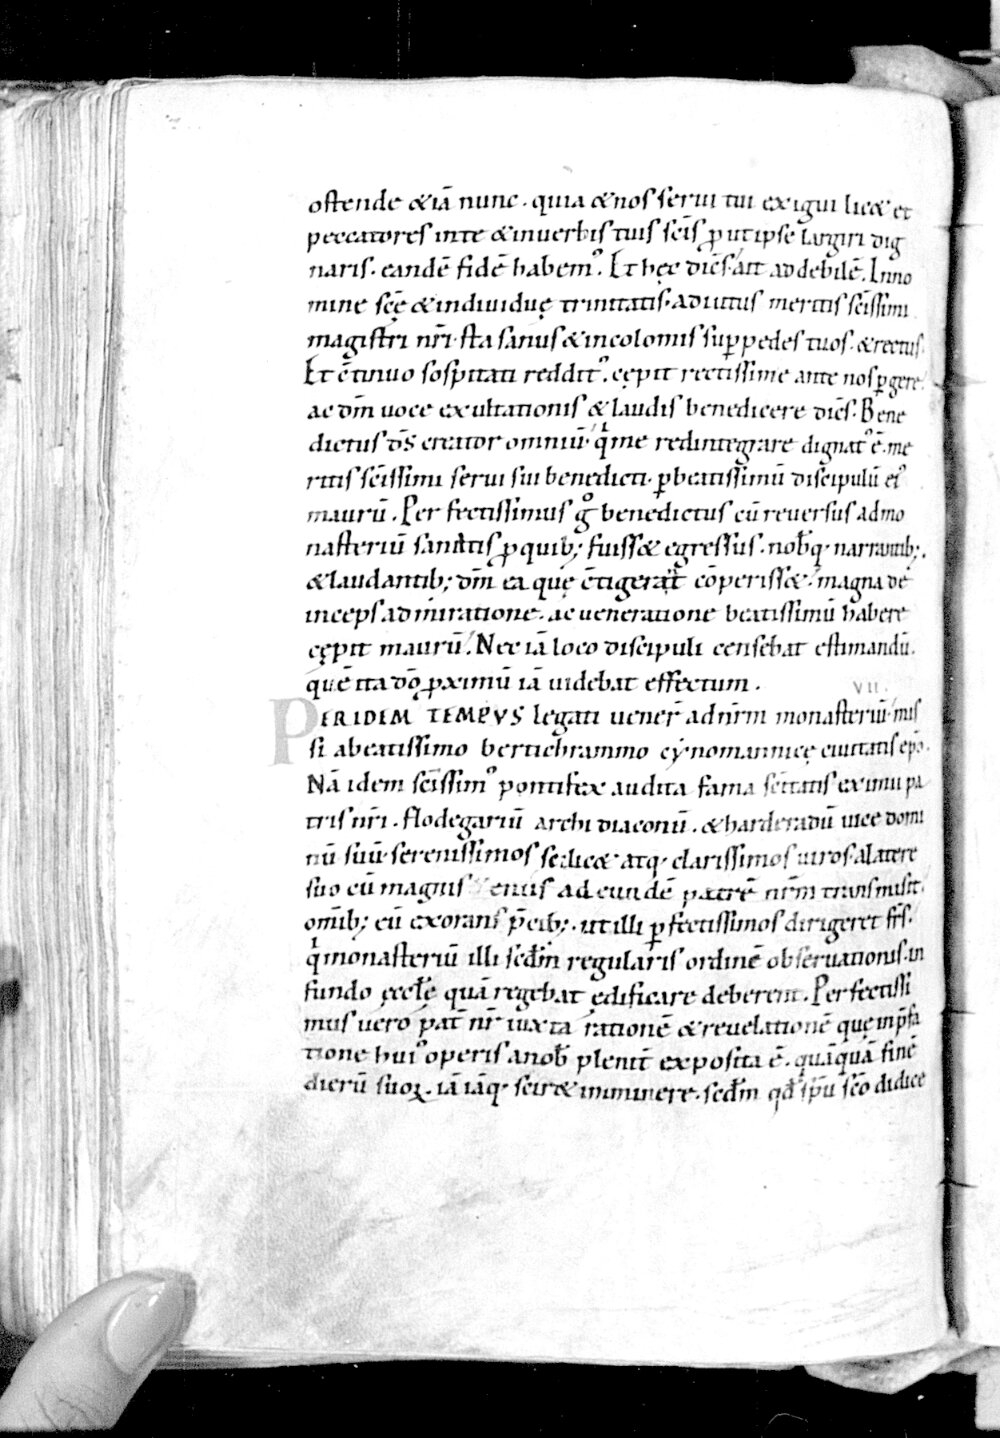 ostende &iā nunc · quia & nos serui tui exigui lic& et
peccatores in te & in uerbis tuis scīs ꝓut ipse largiri dig
naris · eandē fidē habemꝰ. Et hęc dicēs· ait ad debilē. In no
mine scę̄ & indiuiduę trinitatis · adiutus meritis scīssimi
magistri nrī· sta sanus & incolomis sup̱ pedes tuos · & rectus·
Et ↄ̄tinuo sospitati redditꝰ cępit rectissime ante nos p̱gere·
ac dm̄ uoce exultationis & laudis benedicere dicēs· Bene
dictus dс̄ creator omniū· qⁱ me redintegrare dignatꝰ ē· me
ritis scīssimi serui sui benedicti · p̱ beatissimū discipulū eiꝰ
maurū. Perfectissimus gº benedictus cū reuersus ad mo
nasteriū sanitatis ꝓ quib; fuiss& egressus · nob̄q· narrantib;·
& laudantib; dm̄ ea quę ↄ̄tigerat cōperiss&· magna de
inceps admiratione · ac ueneratione beatissimū habere
cępit maurū. Nec iā loco discipuli censebat estimandū·
quē ita dō ꝓximū iā uidebat effectum ·
VII·
PER IDEM TEMPVS legati uener̄ ad nr̄m monasteriū· mis
si a beatissimo bertichrammo cynomannicę ciuitatis epō·
Nā idem scīssimꝰ pontifex audita fama scītatis eximii pa
tris nrī · flodegariū archidiaconū · & harderadū uice domi
nū suū· serenissimos scilic& atq· clarissimos uiros· a latere
suo cū magnis xeniis ad eundē patrē nr̄m transmisit·
omīb; eū exorans p̄cib;· ut illi p̱fectissimos dirigeret fr̄s·
qⁱ monasteriū illi scd̄m regularis ordinē obseruationis· in
fundo ęccłę quā regebat ędificare deberent. Perfectissi
mus uero pat̄ nr̄ iuxta rationē & reuelationē quę in p̄fa
tione huiꝰ operis a nob̄ plenit̄ exposita ē · quāquā finē
dierū suoꝝ · iā iāq· scir& imminere · scd̄m qđ sp̄u scō didice